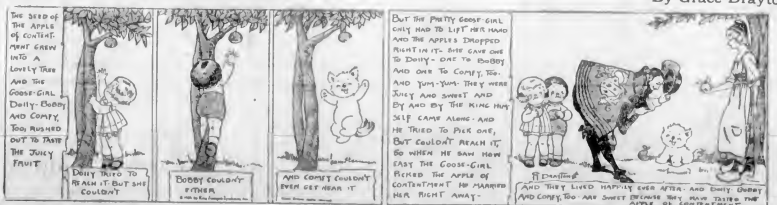 By Grace Drayton
THE SEED OF
THE APPLE
OF CONTENT-
MENT GREW
INTO A
LOVELY TREE
AND THE
GOOSE-GIRL
DOLLY-BOBBY
AND COMFY,
TOO, RUSHED
OUT TO TASTE
THE JUICY
FRUIT.
DOLLY TRIED TO
REACH IT-BUT SHE
COULDN'T
BOBBY COULDN'T
EITHER
AND COMFY COULDN'T
EVEN GET NEAR IT
BUT THE PRETTY GOOSE-GIRL
ONLY HAD TO LIFT HER HAND
AND THE APPLES DROPPED
RIGHT IN IT- SHE GAVE ONE
TO DOLLY- ONE TO BOBBY
AND ONE TO COMFY, TOO.
AND YUM-YUM- THEY WERE
JUICY AND SWEET AND
BY AND BY THE KING HIM
SELF CAME ALONG- AND
HE TRIED TO PICK ONE,
BUT COULDN'T REACH IT,
SO WHEN HE SAW HOW
EASY THE GOOSE-GIRL
PICKED THE APPLE OF
CONTENTMENT HE MARRIED
HER RIGHT AWAY-
AND THEY LIVED HAPPILY EVER AFTER- AND DOLLY BOBBY
AND COMFY, TOO- ARE SWEET BECAUSE THEY HAVE TASTED THE
APPLE OF CONTENTMENT